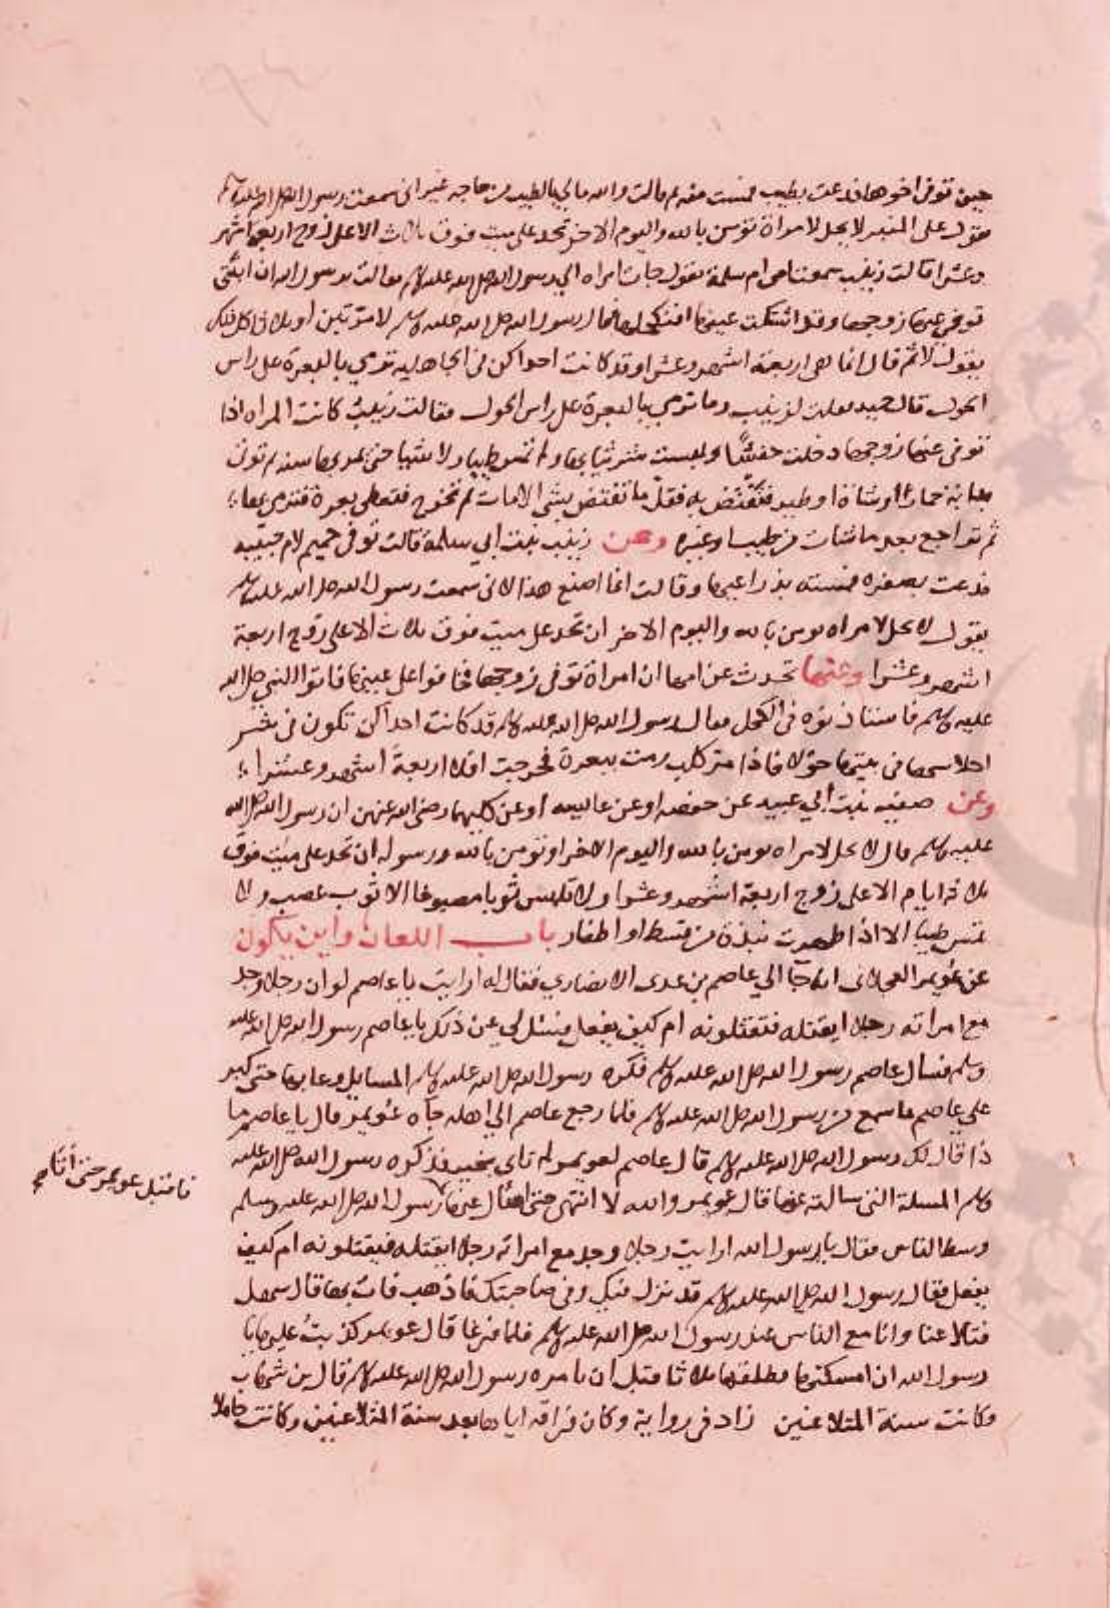 حين توفى اخوها فدعت بطيب فمست منه ثم قالت والله مالي بالطيب من حاجه غير اني سمعت رسول الله صلى الله عليه وسلم
يقول على المنبر لا يحل لامراة تؤمن بالله واليوم الاخر تحد على ميت فوق ثلاث الا على زوج اربعة اشهر
وعشرا قالت زينب سمعت امي ام سلمة تقول جات امراه الي رسول الله صلى الله عليه وسلم فقالت يرسول الله ان ابنتي
توفي عنها زوجها وقد اشتكت عينها افنكحلها فقال رسول الله صلى الله عليه وسلم لا مرتين او ثلاثا كل ذلك
يقول لا ثم قال انما هي اربعة اشهر وعشرا وقد كانت احداكن في الجاهليه ترمي بالبعرة على راس
الحول قال حميد فقلت لزينب وما ترمي بالبعرة على راس الحول فقالت زينب كانت المراه اذا
توفى عنها زوجها دخلت حفشًا ولبست شر ثيابها ولم تمس طيبا ولا شيا حتى تمر بها سنه ثم توتى
بدابة حمار او شاة او طير فتفتض به فقل ما تفتض بشي الا مات ثم تخرج فتعطى بعرة فترمي بها
ثم تراجع بعد ما شات من طيب او غيره وعن زينب بنت ابي سلمة قالت توفى حميم لام حبيبه
فدعت بصفره فمسته بذراعيها وقالت انما اصنع هذا لاني سمعت رسول الله صلى الله عليه وسلم
يقول لا يحل لامراه تومن بالله واليوم الاخر ان تحد على ميت فوق ثلاث الا على زوج اربعة
اشهر وعشرا وعنها تحدث عن امها ان امراة توفى زوجها فخافوا على عينها فاتوا النبي صلى الله
عليه وسلم فاستاذنوه في الكحل فقال رسول الله صلى الله عليه وسلم قد كانت احداكن تكون في شر
احلاسها في بيتها حولا فاذا مر كلب رمت ببعرة فخرجت افلا اربعة اشهر وعشرا
وعن صفيه بنت ابي عبيد عن حفصه او عن عايشه او عن كليهما رضى الله عنهن ان رسول الله صلى الله
عليه وسلم قال لا يحل لامراه تومن بالله واليوم الاخر او تؤمن بالله ورسوله ان تحد على ميت فوق
ثلاثة ايام الا على زوج اربعة اشهر وعشرا ولا تلبس ثوبا مصبوغا الا ثوب عصب ولا
تمس طيبا الا اذا طهرت نبذة من قسط او اظفار باب اللعان واين يكون
عن عويمر العجلاني انه جا الي عاصم بن عدى الانصاري فقال له ارايت يا عاصم لو ان رجلا وجد
مع امراته رجلا ايقتله فتقتلونه ام كيف يفعل فسئل لي عن ذلك يا عاصم رسول الله صلى الله عليه
وسلم فسال عاصم رسول الله صلى الله عليه وسلم فكره رسول الله صلى الله عليه وسلم المسايل وعابها حتى كبر
على عاصم ما سمع من رسول الله صلى الله عليه وسلم فلما رجع عاصم الي اهله جآه عويمر فقال يا عاصم ما
ذا قال لك رسول الله صلى الله عليه وسلم قال عاصم لعويمر لم تاتي بخير قد كره رسول الله صلى الله عليه
وسلم المسلة التي سالته عنها قال عويمر والله لا انتهى حتى اسال عنها رسول الله صلى الله عليه وسلم
فاقبل عويمر حتى اتا
وسط الناس فقال يا رسول الله ارايت رجلا وجد مع امراته رجلا ايقتله فيقتلونه ام كيف
يفعل فقال رسول الله صلى الله عليه وسلم قد نزل فيك وفي صاحبتك فاذهب فات بها قال سهل
فتلاعنا وانا مع الناس عند رسول الله صلى الله عليه وسلم فلما فرغا قال عويمر كذبت عليها يا
رسول الله ان امسكتها فطلقها ثلاثا قبل ان يامره رسول الله صلى الله عليه وسلم قال بن شهاب
وكانت سنة المتلاعنين زاد في رواية وكان فراقه اياها بعد سنة المتلاعنين وكانت حاملا